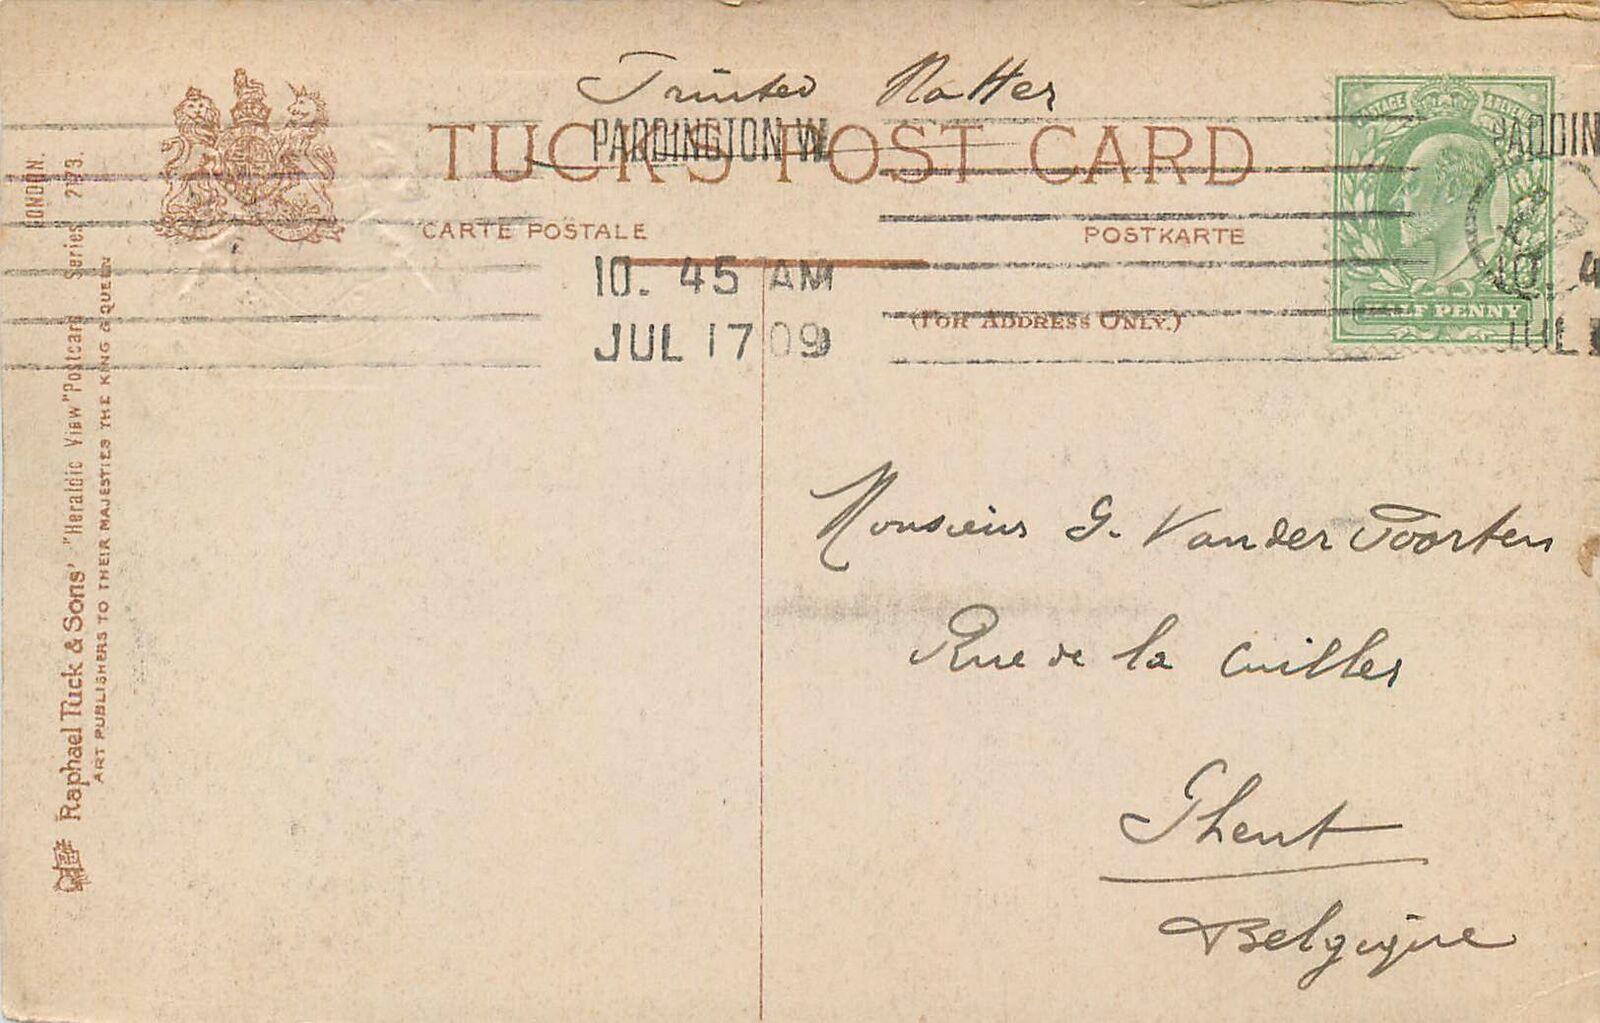 Printed Matter
TUCK'S POST CARD
PADDINGTON W.
PADDIN
CARTE POSTALE
POSTKARTE
10. 45 AM
JUL 17 09
(FOR ADDRESS ONLY.)
POSTAGE
REVENUE
HALF PENNY
10. 4
JUL
Monsieur G. Van der Poorten
Rue de la Cuiller
Ghent
Belgique
Raphael Tuck & Sons' "Heraldic View" Postcard Series 2173.
LONDON.
ART PUBLISHERS TO THEIR MAJESTIES THE KING & QUEEN